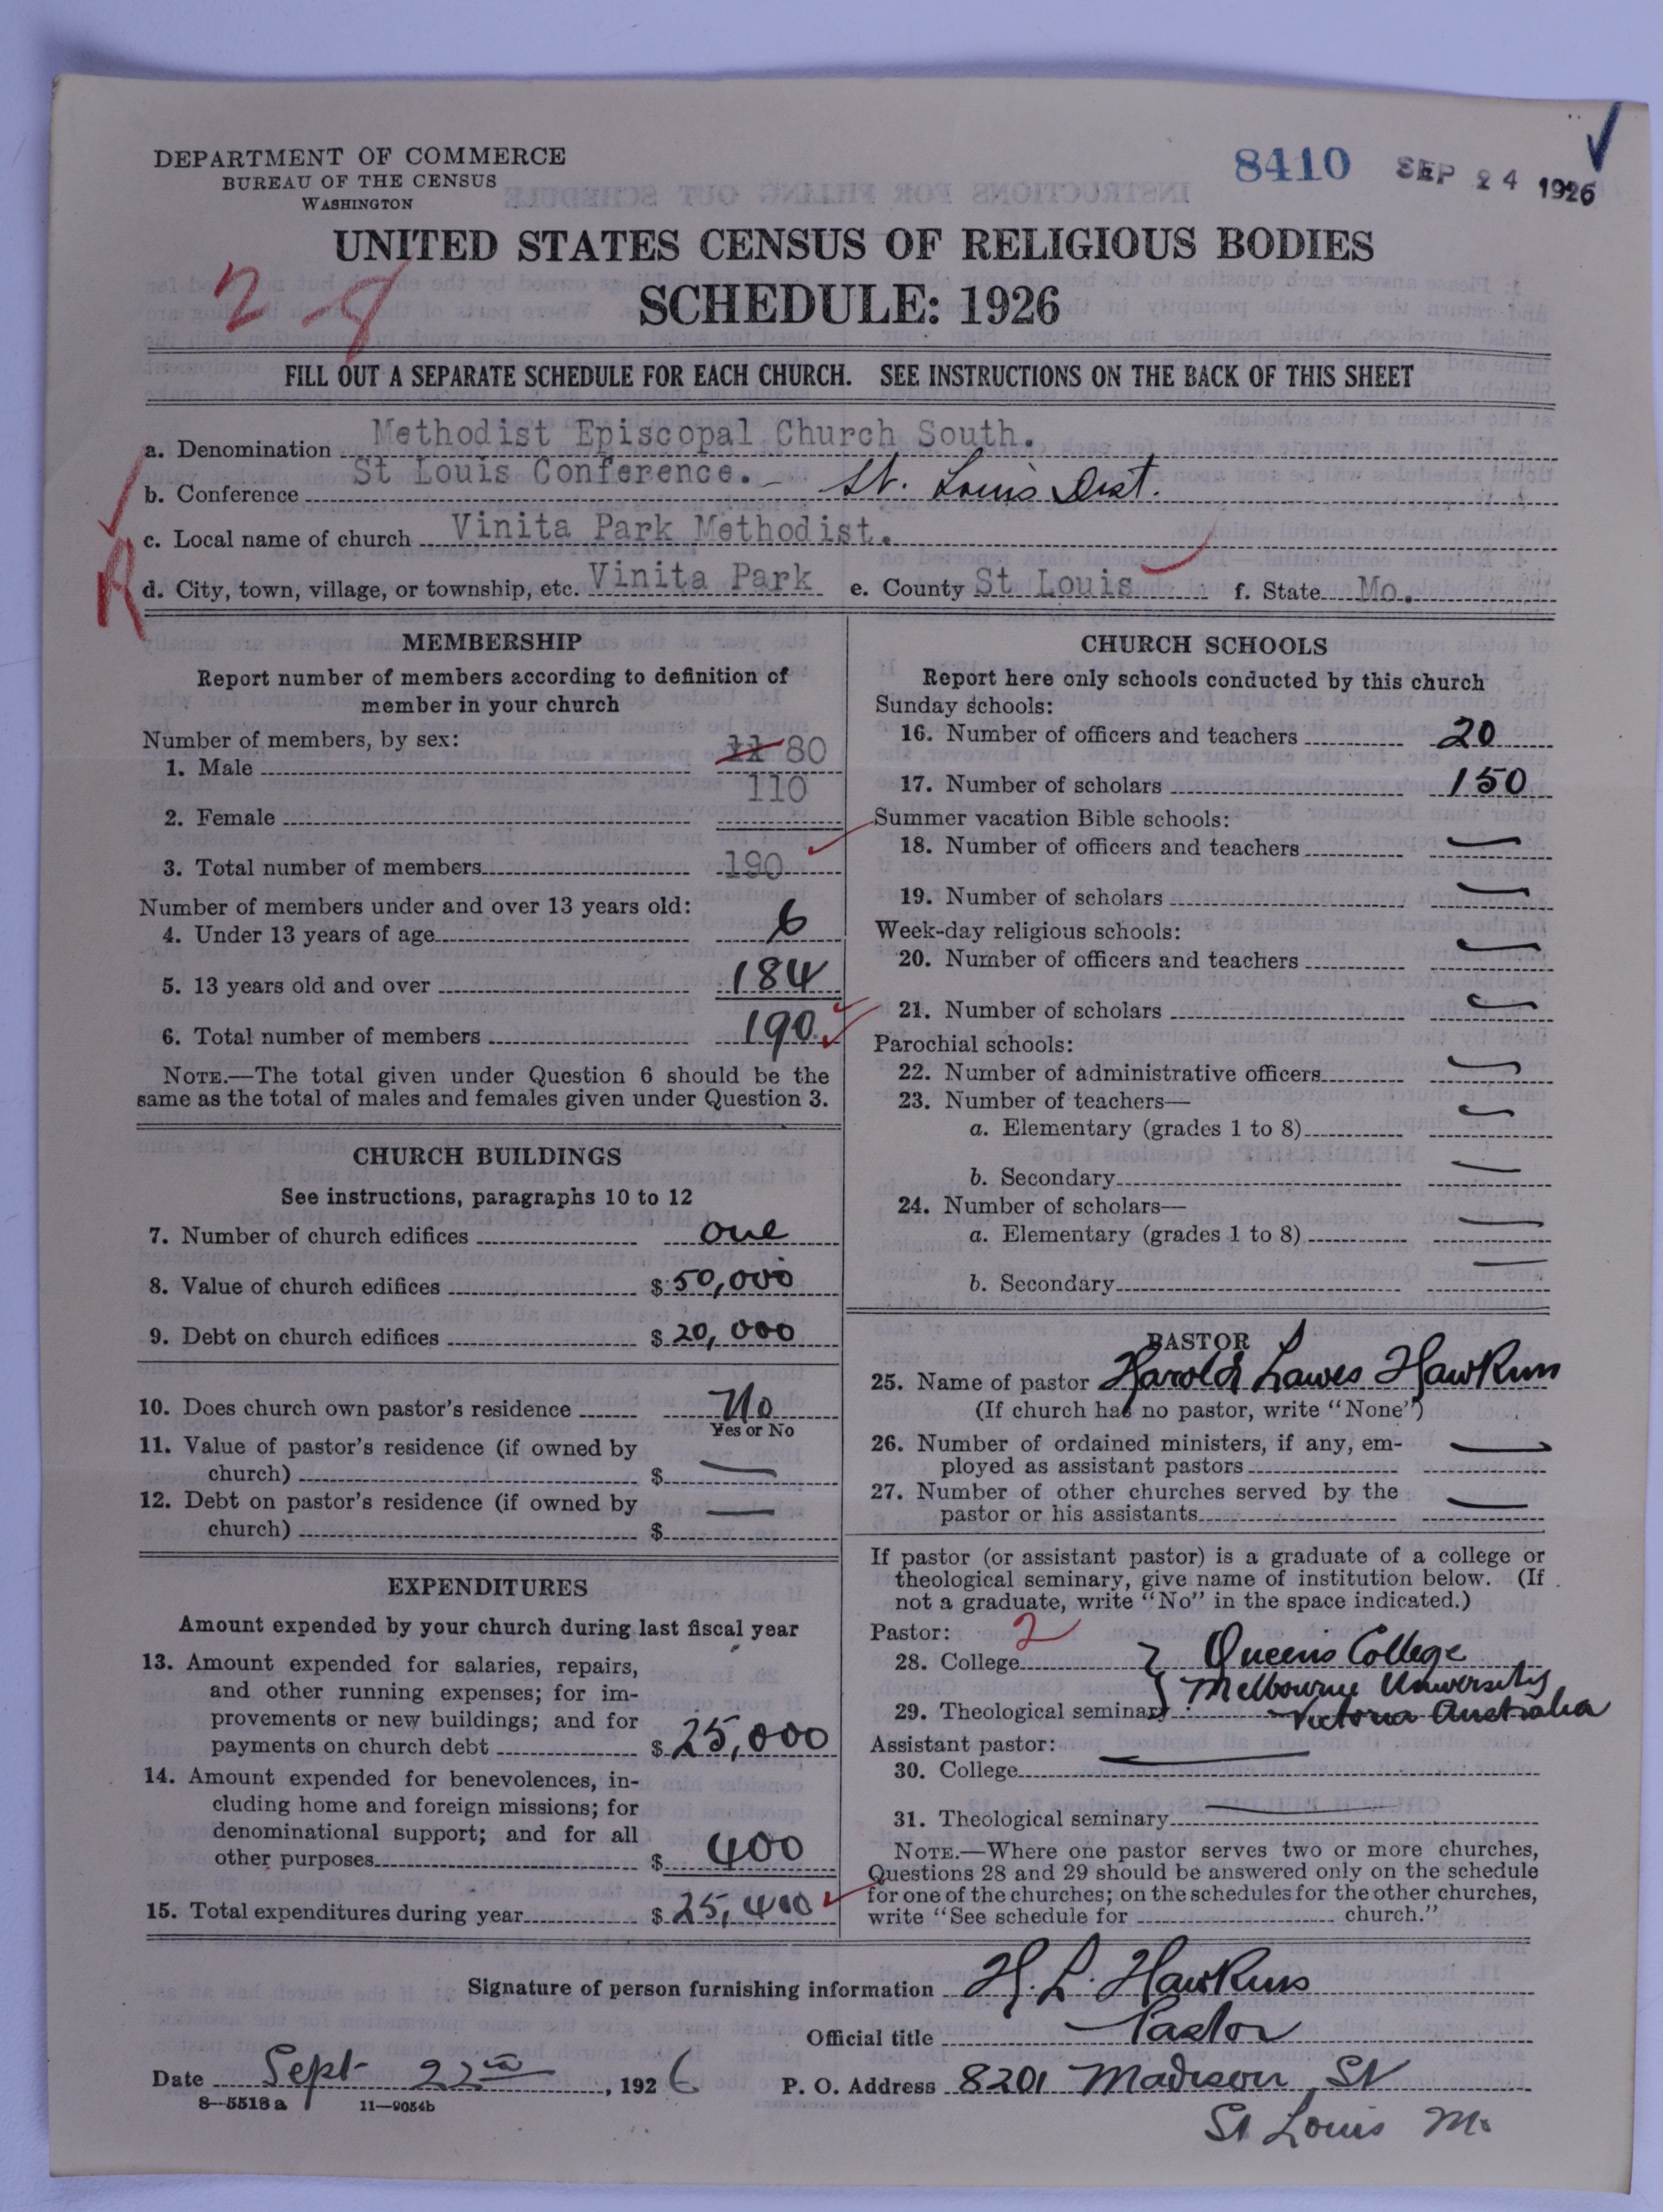 DEPARTMENT OF COMMERCE
BUREAU OF THE CENSUS
WASHINGTON
8410 SEP 24 1926
UNITED STATES CENSUS OF RELIGIOUS BODIES
SCHEDULE: 1926
FILL OUT A SEPARATE SCHEDULE FOR EACH CHURCH. SEE INSTRUCTIONS ON THE BACK OF THIS SHEET
a. Denomination Methodist Episcopal Church South.
b. Conference St Louis Conference. - St. Louis Dist.
c. Local name of church Vinita Park Methodist.
R
d. City, town, village, or township, etc. Vinita Park e. County St Louis f. State Mo.
MEMBERSHIP
Report number of members according to definition of
member in your church
Number of members, by sex:
1. Male 11 80
2. Female 110
3. Total number of members 190
Number of members under and over 13 years old:
4. Under 13 years of age 6
5. 13 years old and over 184
6. Total number of members 190
NOTE.—The total given under Question 6 should be the
same as the total of males and females given under Question 3.
CHURCH BUILDINGS
See instructions, paragraphs 10 to 12
7. Number of church edifices one
8. Value of church edifices $ 50,000
9. Debt on church edifices $ 20,000
10. Does church own pastor's residence No
Yes or No
11. Value of pastor's residence (if owned by
church) $ —
12. Debt on pastor's residence (if owned by
church) $ —
EXPENDITURES
Amount expended by your church during last fiscal year
13. Amount expended for salaries, repairs,
and other running expenses; for im-
provements or new buildings; and for
payments on church debt $ 25,000
14. Amount expended for benevolences, in-
cluding home and foreign missions; for
denominational support; and for all
other purposes $ 400
15. Total expenditures during year $ 25,400
CHURCH SCHOOLS
Report here only schools conducted by this church
Sunday schools:
16. Number of officers and teachers 20
17. Number of scholars 150
Summer vacation Bible schools:
18. Number of officers and teachers —
19. Number of scholars —
Week-day religious schools:
20. Number of officers and teachers —
21. Number of scholars —
Parochial schools:
22. Number of administrative officers —
23. Number of teachers—
a. Elementary (grades 1 to 8) —
b. Secondary —
24. Number of scholars—
a. Elementary (grades 1 to 8) —
b. Secondary —
PASTOR
25. Name of pastor Harold Lawes Hawkins
(If church has no pastor, write "None")
26. Number of ordained ministers, if any, em-
ployed as assistant pastors —
27. Number of other churches served by the
pastor or his assistants —
If pastor (or assistant pastor) is a graduate of a college or
theological seminary, give name of institution below. (If
not a graduate, write "No" in the space indicated.)
Pastor: 2
28. College } Queens College
Melbourne University
29. Theological seminary Victoria Australia
Assistant pastor:
30. College —
31. Theological seminary —
NOTE.—Where one pastor serves two or more churches,
Questions 28 and 29 should be answered only on the schedule
for one of the churches; on the schedules for the other churches,
write "See schedule for church."
Signature of person furnishing information H. L. Hawkins
Official title Pastor
Date Sept 22nd, 1926 P. O. Address 8201 Madison St
8-5518a 11-9054b
St Louis Mo